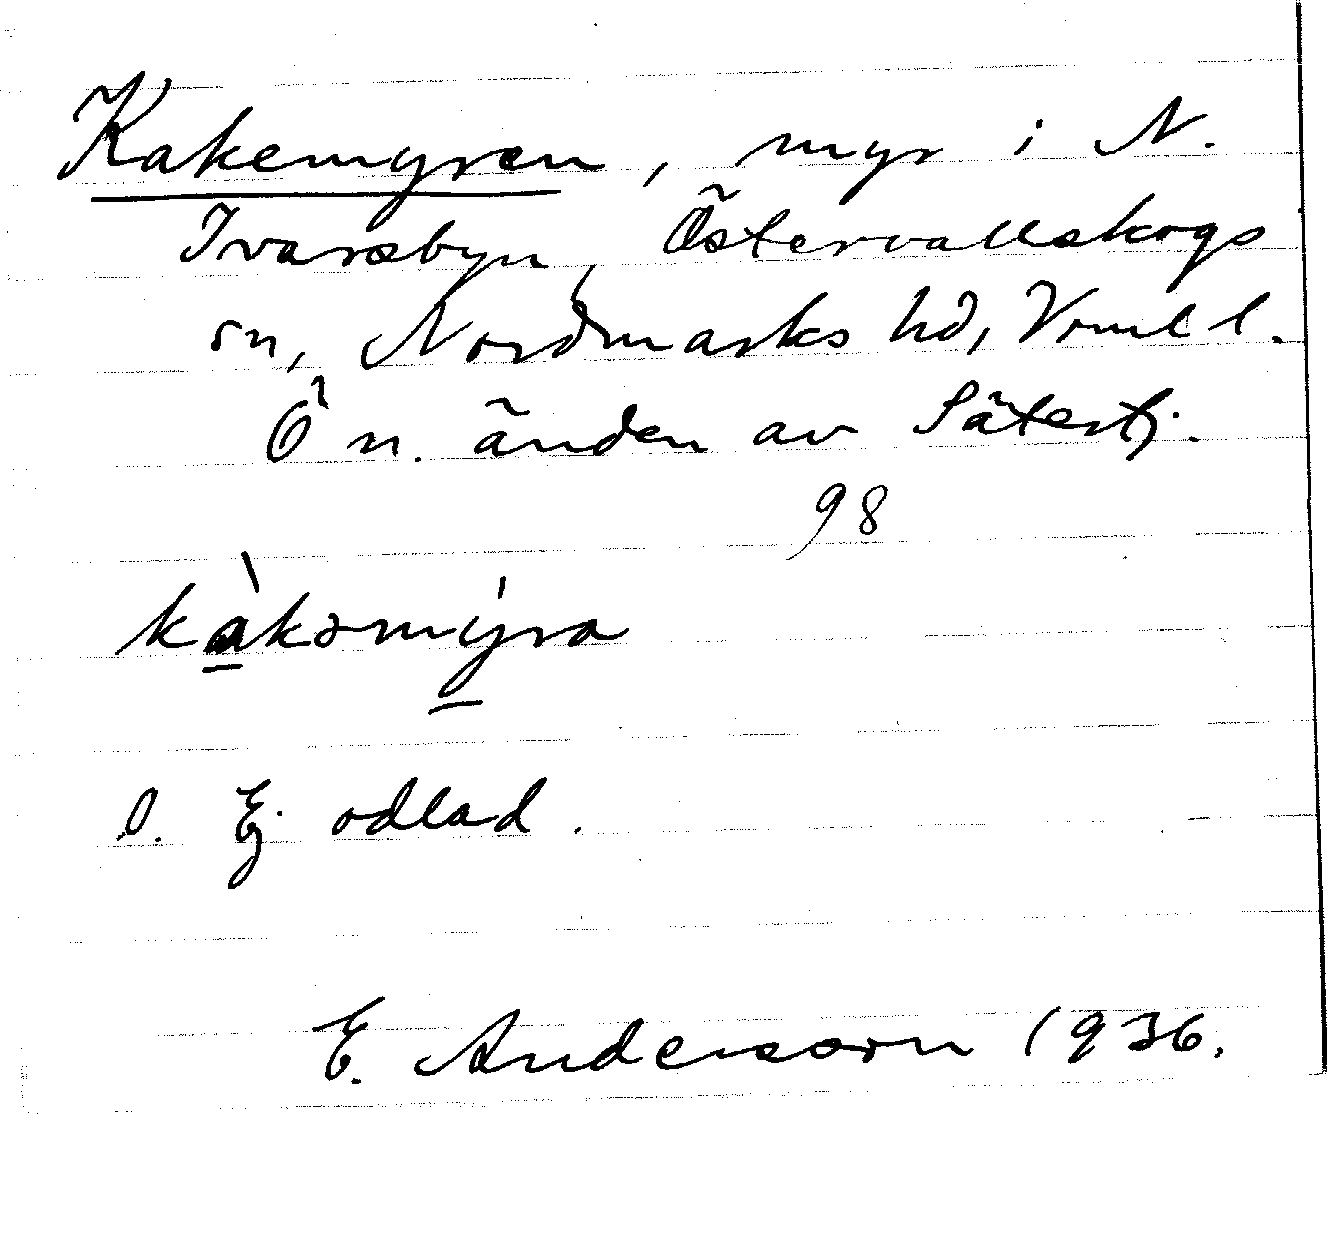 Kakemyren, myr i N.
Ivarsbyn, Östervallskogs
sn, Nordmarks hd, Vrml l.
Ö n. änden av Sätertj.
98
kàkəmýra
l. Ej odlad.
E. Andersson 1936.